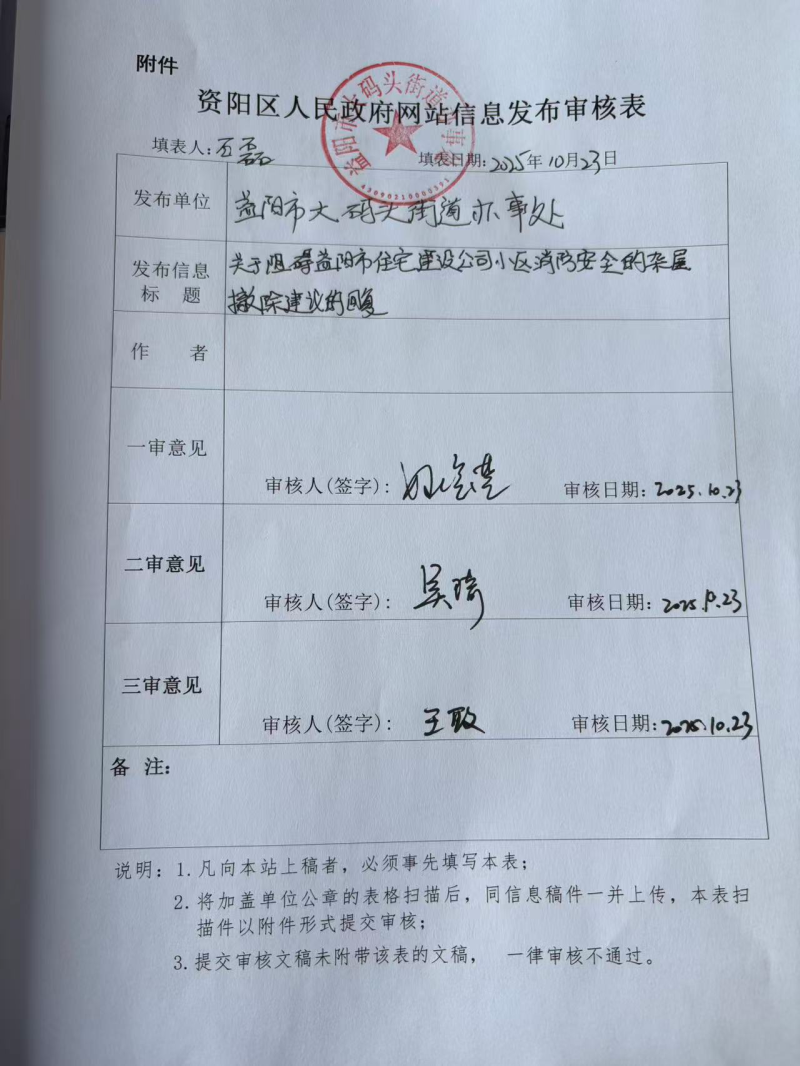 附件
资阳区人民政府网站信息发布审核表
填表人：石磊 填表日期：2025年10月23日
发布单位 益阳市大码头街道办事处
发布信息标题 关于阻碍益阳市住宅建设公司小区消防安全的杂屋
撤除建议的回复
作 者
一审意见
审核人(签字)： 审核日期：2025.10.23
二审意见
审核人(签字)：吴琦 审核日期：2025.10.23
三审意见
审核人(签字)：王敢 审核日期：2025.10.23
备 注：
说明：1.凡向本站上稿者，必须事先填写本表；
2.将加盖单位公章的表格扫描后，同信息稿件一并上传，本表扫
描件以附件形式提交审核；
3.提交审核文稿未附带该表的文稿， 一律审核不通过。